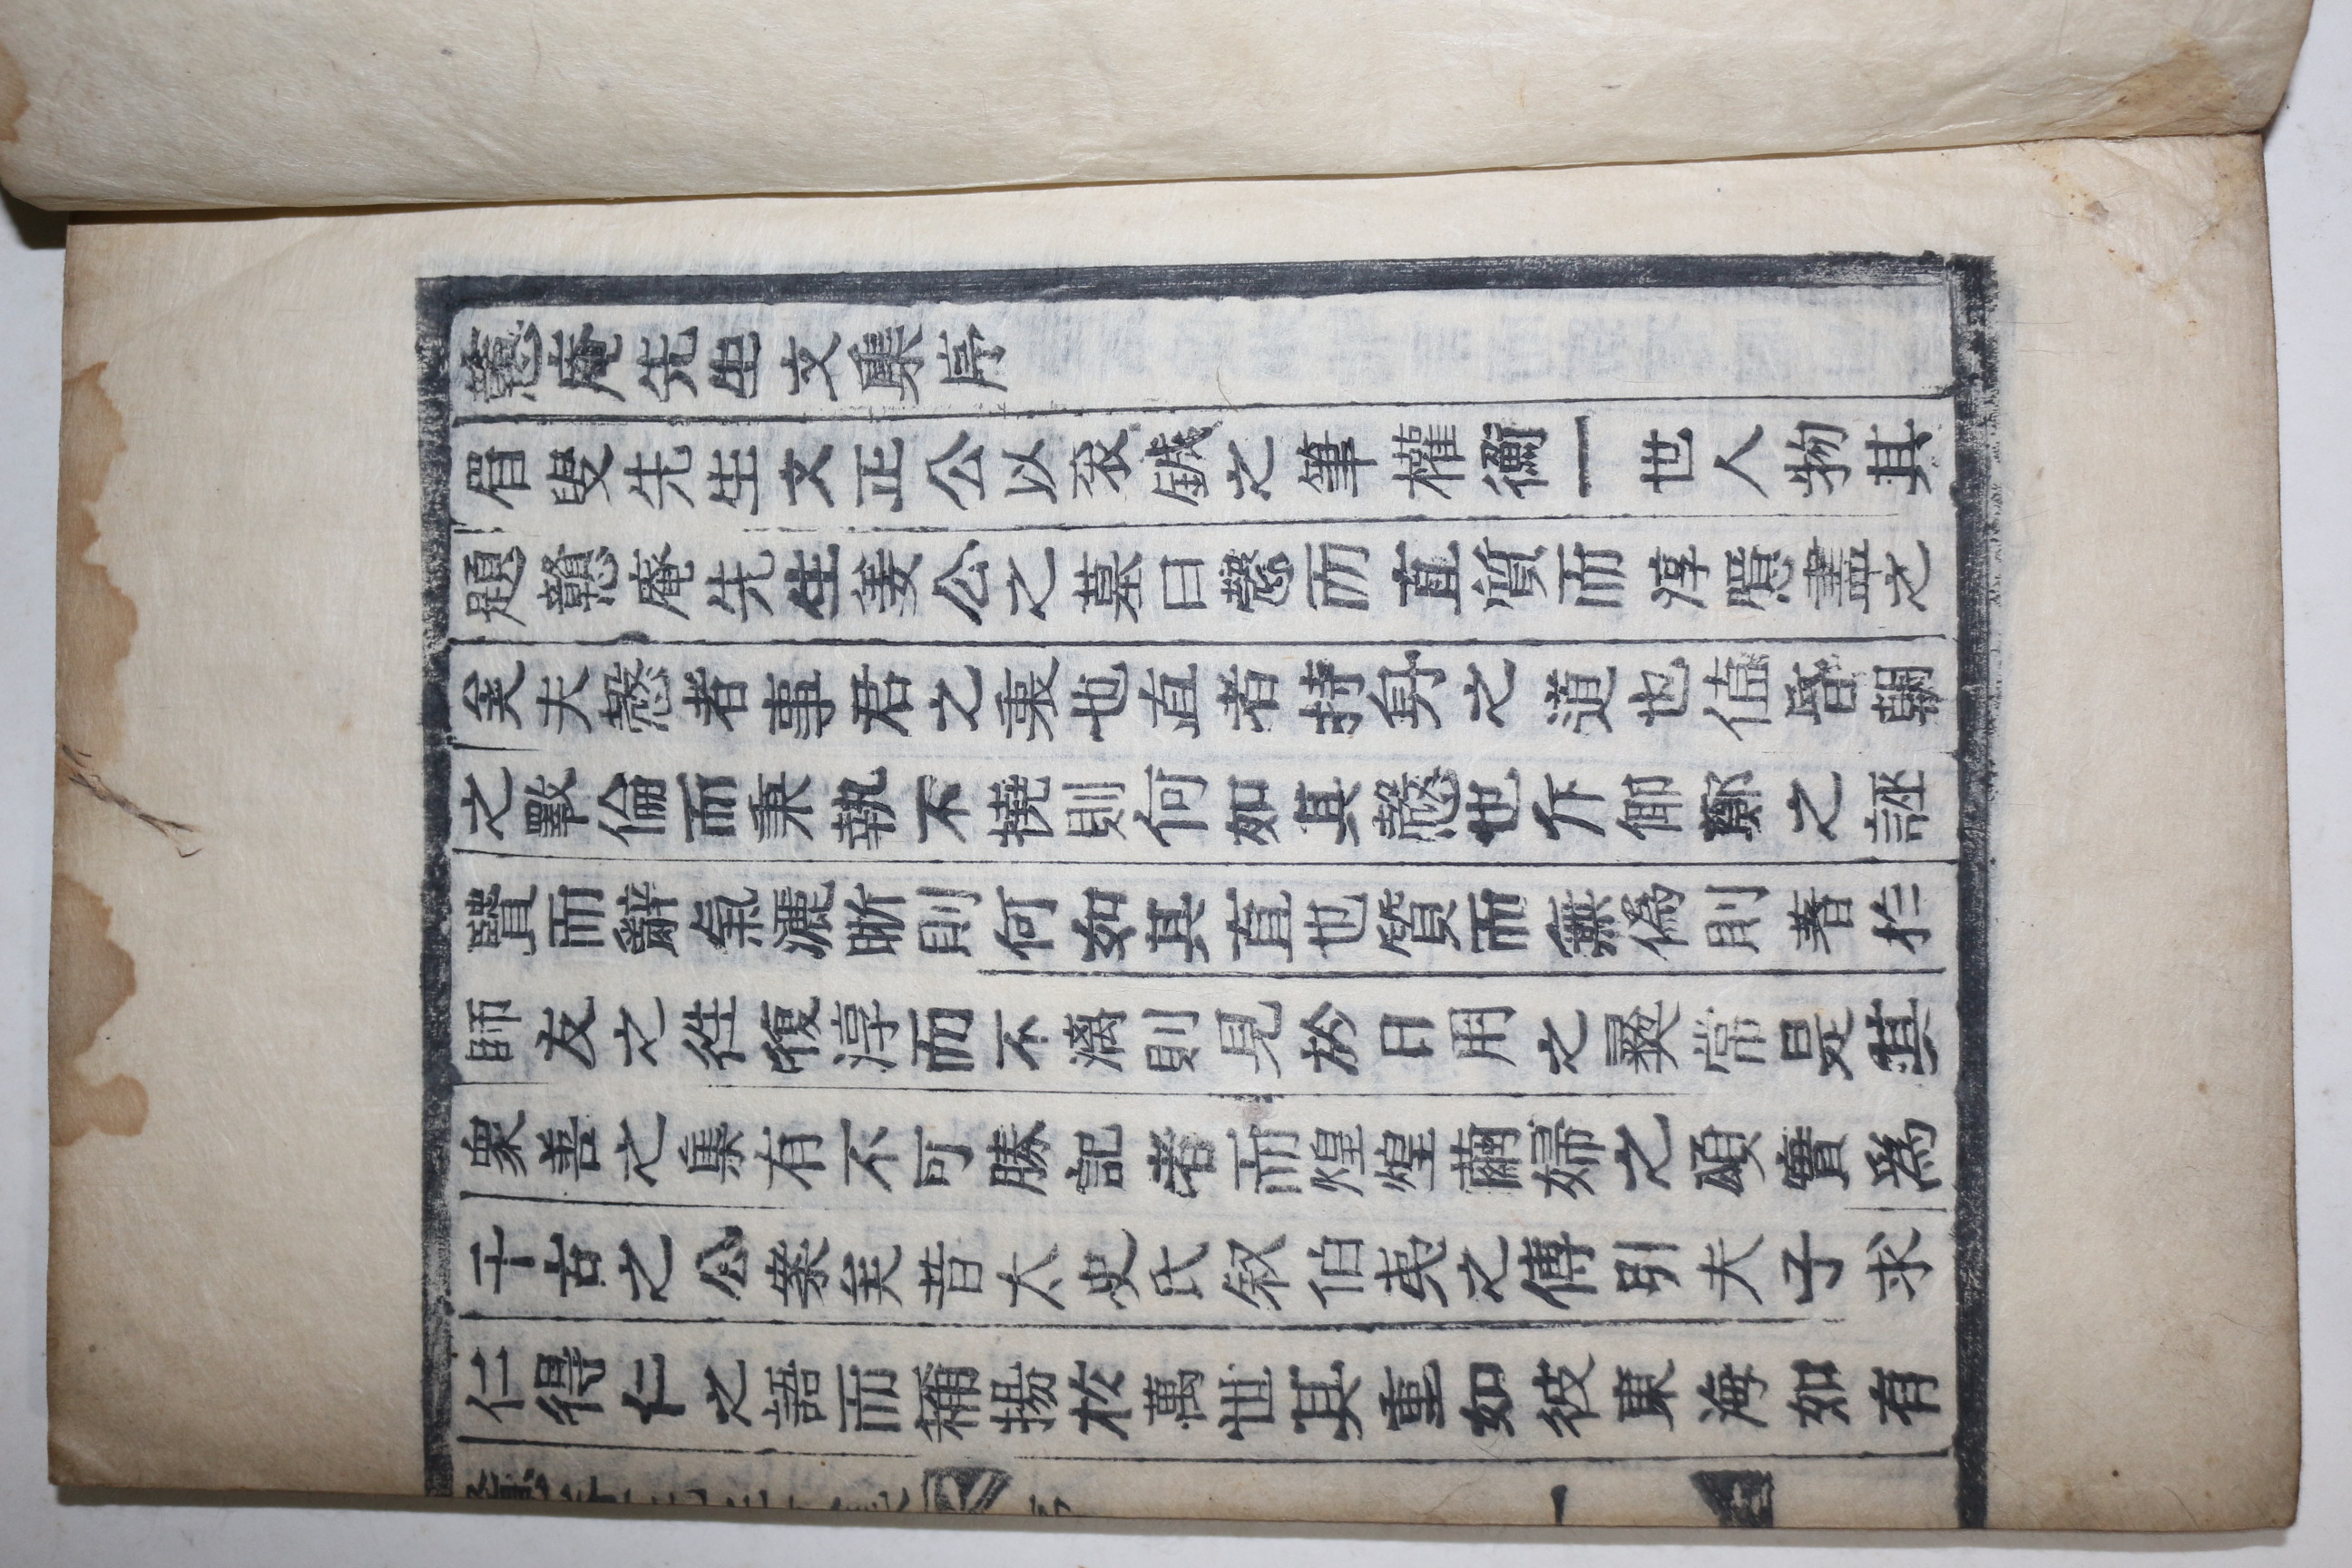 戇庵先生文集序
眉叟先生文正公以衮鉞之筆權衡一世人物其
題戇庵先生姜公之墓曰慤而直質而淳㥯盡之
矣夫慤者事君之秉也直者持身之道也值昏朝
之斁倫而秉執不撓則何如其慤也斥鄭之誣
賢而辭氣灑晣則何如其直也質而無僞則著於
師友之往復淳而不漓則見於日用之彛常是其
衆善之集有不可勝記者而煌煌黼黻之頌實爲
千古之公案矣昔太史氏叙伯夷之傳引夫子求
仁得仁之語而稱揚於萬世其重如彼東海如有